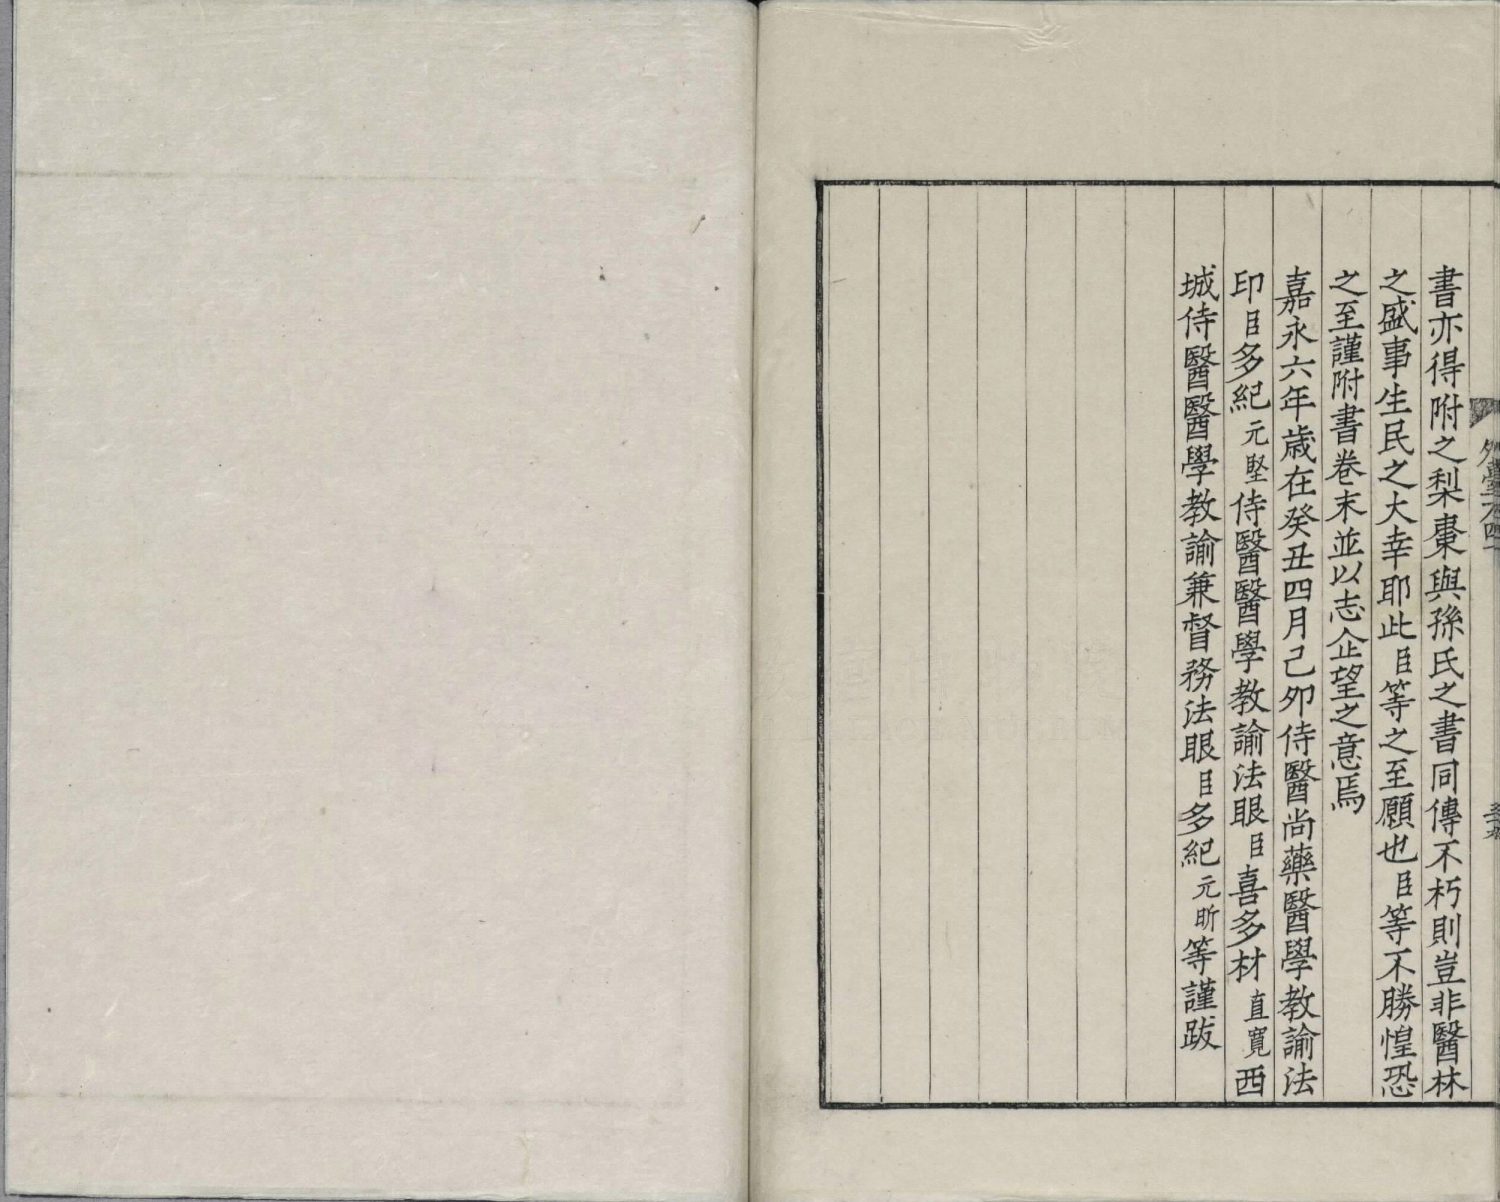 書亦得附之梨棗與孫氏之書同傳不朽則豈非醫林
之盛事生民之大幸耶此臣等之至願也臣等不勝惶恐
之至謹附書卷末並以志企望之意焉
嘉永六年歲在癸丑四月己卯侍醫尚藥醫學教諭法
印臣多紀元堅侍醫醫學教諭法眼臣喜多村直寬西
城侍醫醫學教諭兼督務法眼臣多紀元昕等謹跋